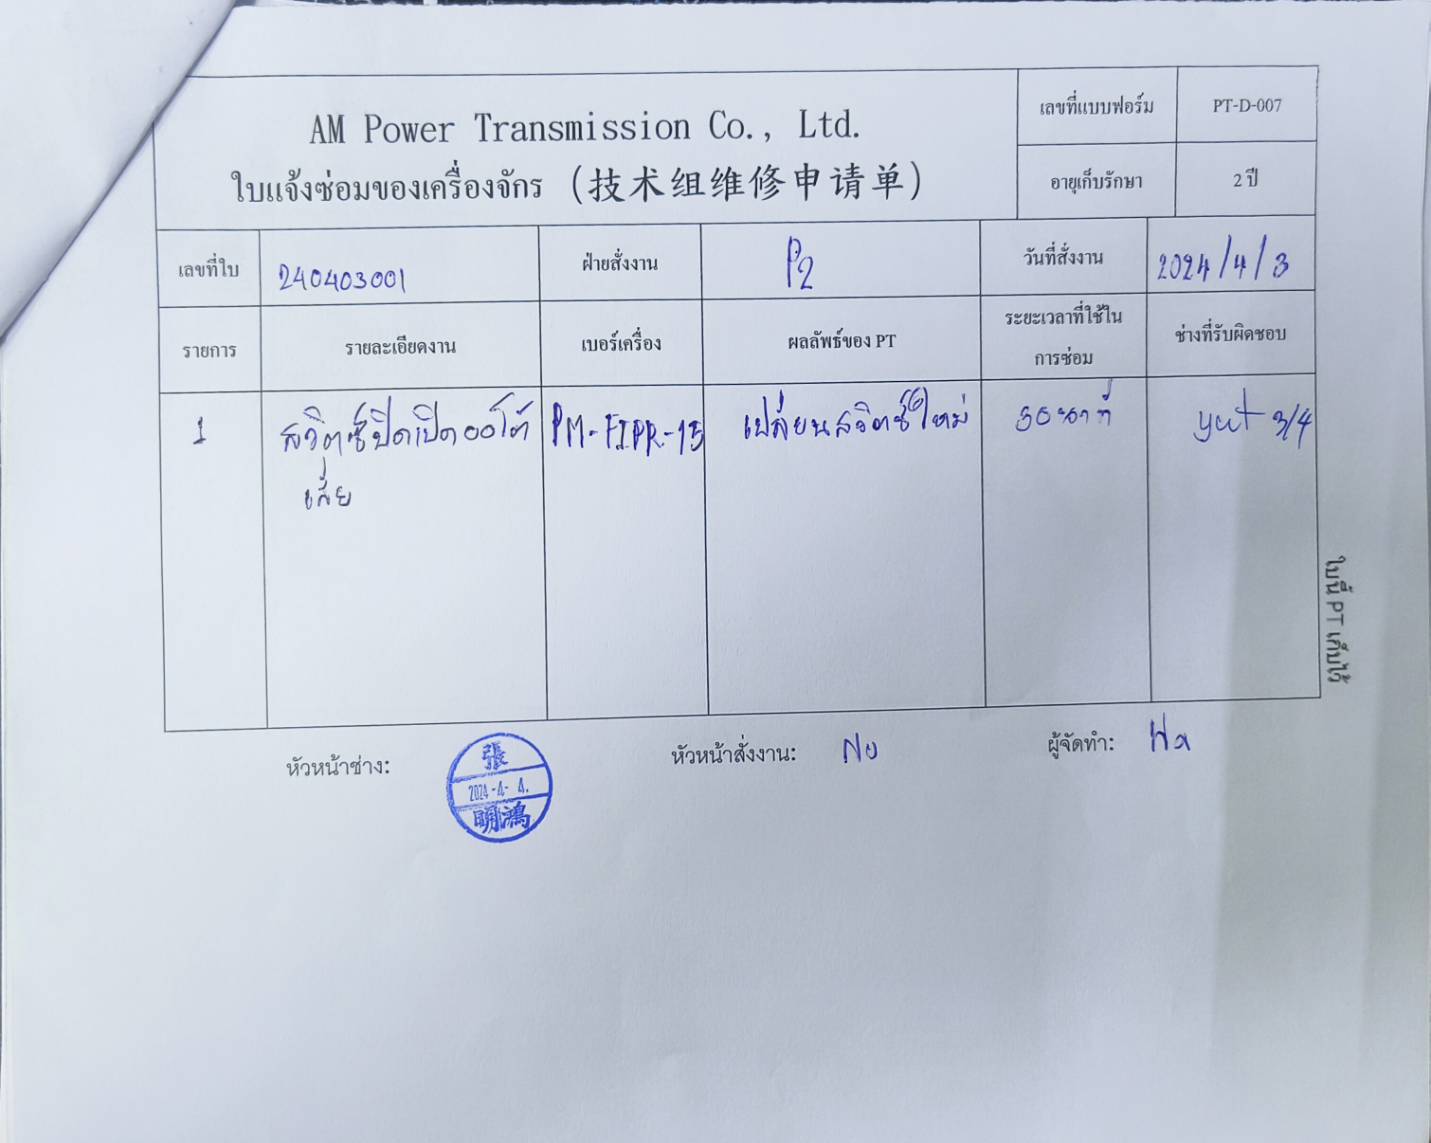 AM Power Transmission Co., Ltd.
ใบแจ้งซ่อมของเครื่องจักร (技术组维修申请单)
เลขที่แบบฟอร์ม PT-D-007
อายุเก็บรักษา 2 ปี
เลขที่ใบ 240403001 ฝ่ายสั่งงาน P2 วันที่สั่งงาน 2024/4/3
รายการ รายละเอียดงาน เบอร์เครื่อง ผลลัพธ์ของ PT ระยะเวลาที่ใช้ใน
การซ่อม
ช่างที่รับผิดชอบ
1 สวิตซ์ปิดเปิดออโต้ PM-FIPR-15 เปลี่ยนสวิตซ์ใหม่ 30 นาที yut 3/4
เสีย
ใบนี้ PT เก็บไว้
หัวหน้าช่าง: 張
2024-4-4.
明鴻
หัวหน้าสั่งงาน: ผู้จัดทำ: